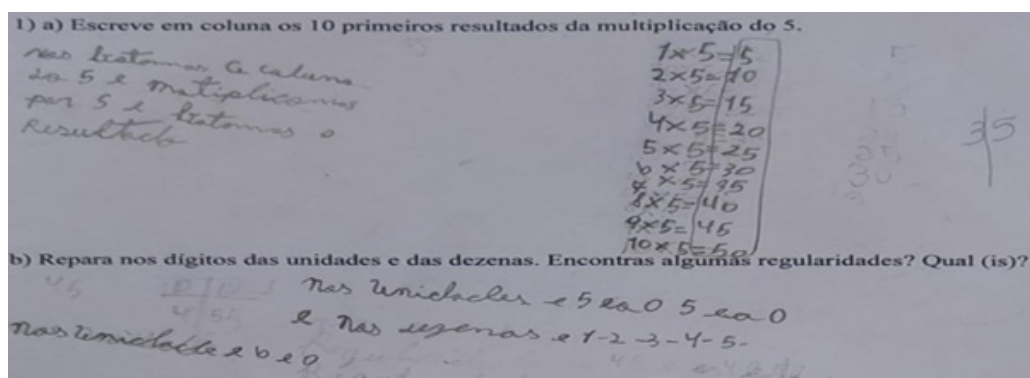 1) a) Escreve em coluna os 10 primeiros resultados da multiplicação do 5.
nas tratomas a caluna
do 5 e matiplicamas
por 5 e tratomas o
Resultado
1x5=5
2x5=10
3x5=15
4x5=20
5x5=25
6x5=30
7x5=35
8x5=40
9x5=45
10x5=50
35
b) Repara nos dígitos das unidades e das dezenas. Encontras algumas regularidades? Qual (is)?
nas unidades e 5 e a 0 5 e a 0
e nas e 1-2-3-4-5-
nas e 0